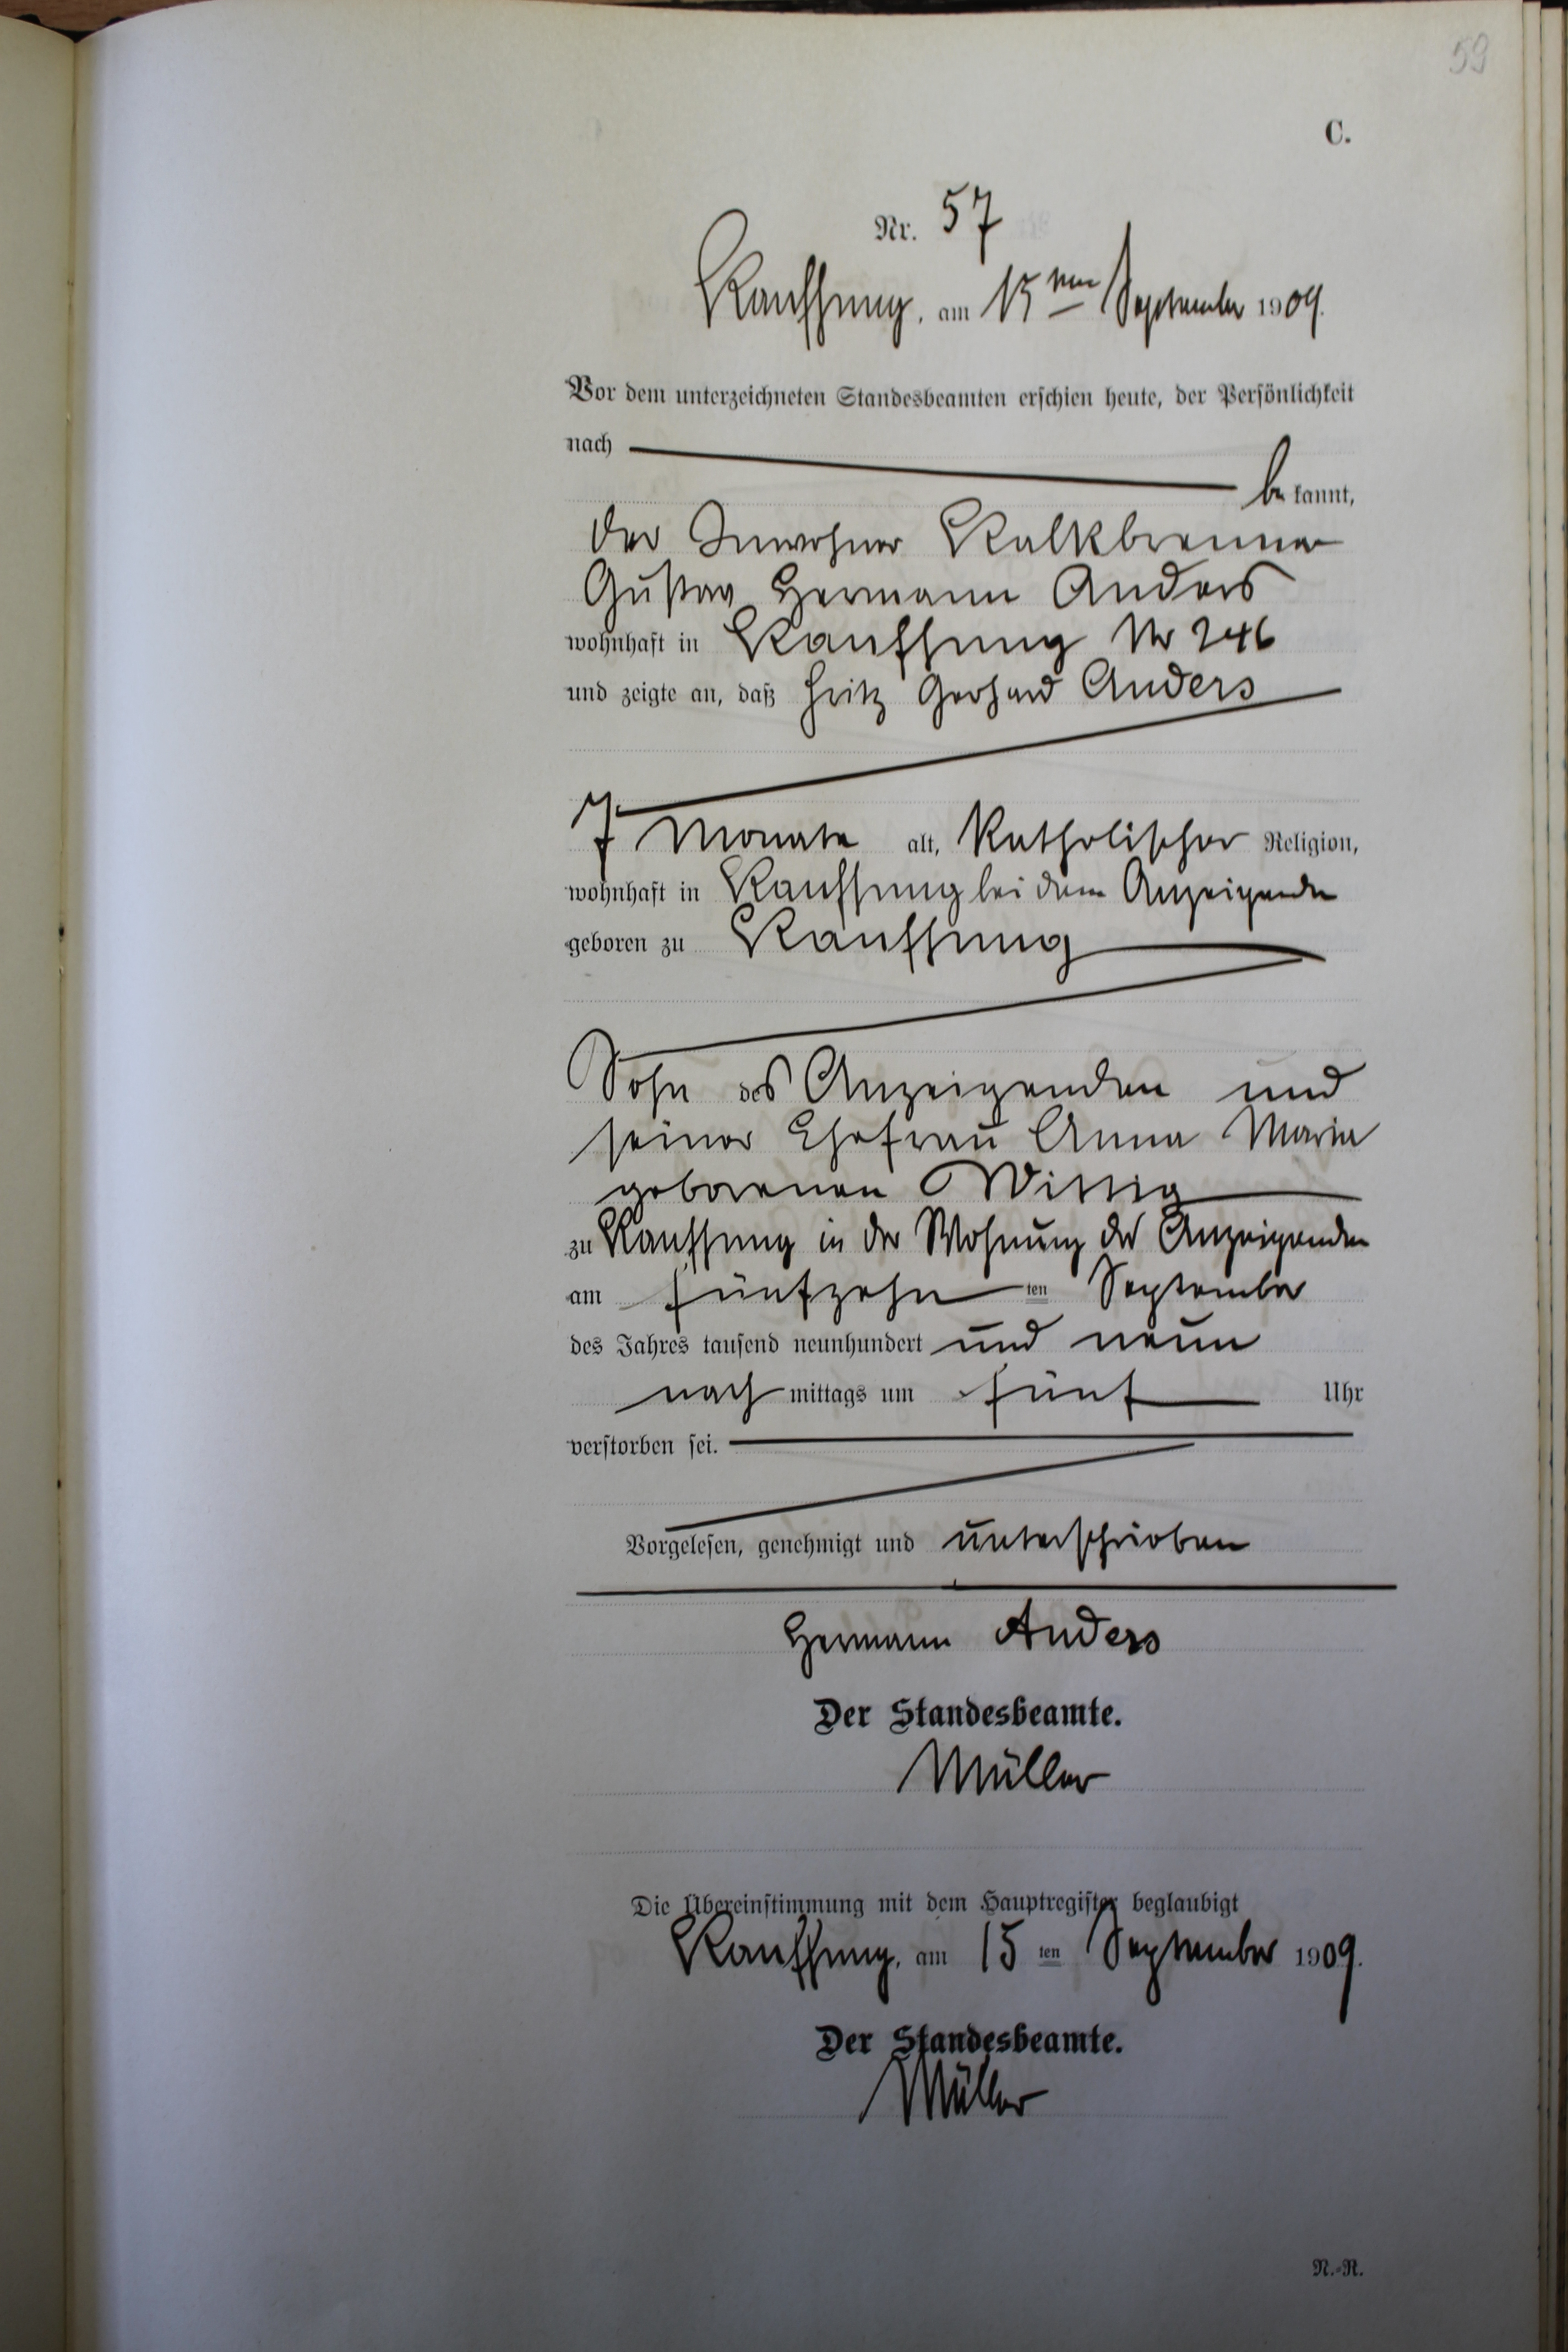 59
C.
Nr. 57
Kauffung, am 15ten September 1909.
Vor dem unterzeichneten Standesbeamten erschien heute, der Persönlichkeit
nach
be kannt,
der Inwohner Kalkbrenner
Gustav Hermann Anders
wohnhaft in Kauffung Nr 246
und zeigte an, daß Fritz Gerhard Anders
7 Monate alt, katholischer Religion,
wohnhaft in Kauffung bei dem Anzeigenden
geboren zu Kauffung
Sohn des Anzeigenden und
seiner Ehefrau Anna Maria
geborenen Wittig
zu Kauffung in der Wohnung des Anzeigenden
am fünfzehn ten September
des Jahres tausend neunhundert und neun
nach mittags um fünf Uhr
verstorben sei.
Vorgelesen, genehmigt und unterschrieben
Hermann Anders
Der Standesbeamte.
Müller
Die Übereinstimmung mit dem Hauptregister beglaubigt
Kauffung, am 15 ten September 1909.
Der Standesbeamte.
Müller
N.-R.